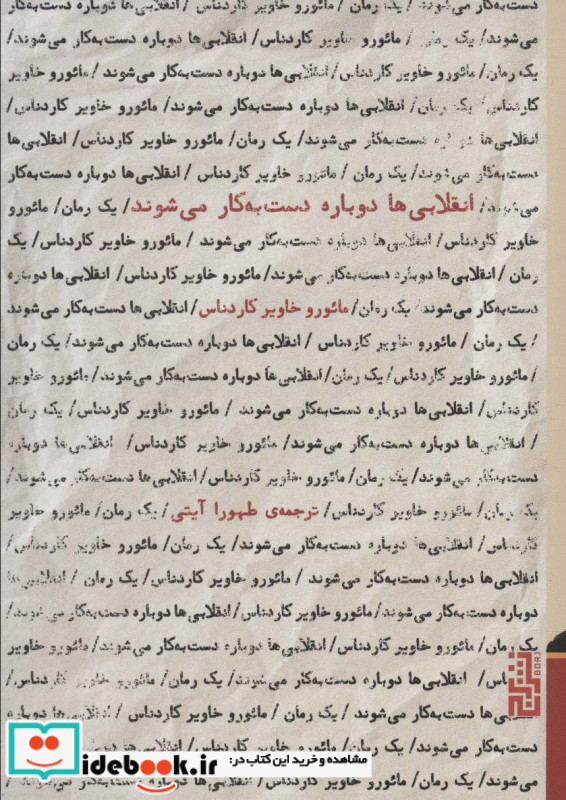 دست‌به‌کار می‌شوند / یک رمان / مائورو خاویر کاردناس/ انقلابی‌ها دوباره دست‌به‌کار
می‌شوند/ یک رمان / مائورو خاویر کاردناس/ انقلابی‌ها دوباره دست‌به‌کار می‌شوند/
یک رمان/ مائورو خاویر کاردناس/ انقلابی‌ها دوباره دست‌به‌کار می‌شوند / مائورو خاویر
کاردناس/ یک رمان/ انقلابی‌ها دوباره دست‌به‌کار می‌شوند/ مائورو خاویر کاردناس/
انقلابی‌ها دوباره دست‌به‌کار می‌شوند/ یک رمان/ مائورو خاویر کاردناس/ انقلابی‌ها
دست‌به‌کار می‌شوند/ یک رمان / مائورو خاویر کاردناس / انقلابی‌ها دوباره دست‌به‌کار
می‌شوند/ انقلابی‌ها دوباره دست‌به‌کار می‌شوند/ یک رمان/ مائورو
خاویر کاردناس/ انقلابی‌ها دوباره دست‌به‌کار می‌شوند / مائورو خاویر کاردناس/ یک
رمان / انقلابی‌ها دوباره دست‌به‌کار می‌شوند/ مائورو خاویر کاردناس/ انقلابی‌ها دوباره
دست‌به‌کار می‌شوند/ یک رمان/ مائورو خاویر کاردناس/ انقلابی‌ها دست‌به‌کار می‌شوند
/ یک رمان / مائورو خاویر کاردناس / انقلابی‌ها دوباره دست‌به‌کار می‌شوند/ یک رمان
/ مائورو خاویر کاردناس/ یک رمان/ انقلابی‌ها دوباره دست‌به‌کار می‌شوند/ مائورو خاویر
کاردناس/ انقلابی‌ها دوباره دست‌به‌کار می‌شوند / مائورو خاویر کاردناس/ یک رمان
/ انقلابی‌ها دوباره دست‌به‌کار می‌شوند/ مائورو خاویر کاردناس/ انقلابی‌ها دوباره
دست‌به‌کار می‌شوند/ یک رمان/ مائورو خاویر کاردناس/ انقلابی‌ها دست‌به‌کار می‌شوند/
یک رمان/ مائورو خاویر کاردناس/ ترجمه‌ی طهورا آیتی/ یک رمان/ مائورو خاویر
کاردناس/ انقلابی‌ها دوباره دست‌به‌کار می‌شوند/ یک رمان/ مائورو خاویر کاردناس/
انقلابی‌ها دوباره دست‌به‌کار می‌شوند / مائورو خاویر کاردناس/ یک رمان / انقلابی‌ها
دوباره دست‌به‌کار می‌شوند/ مائورو خاویر کاردناس/ انقلابی‌ها دوباره دست‌به‌کار می‌شوند/
یک رمان/ مائورو خاویر کاردناس/ انقلابی‌ها دست‌به‌کار می‌شوند/ مائورو خاویر
کاردناس/ انقلابی‌ها دوباره دست‌به‌کار می‌شوند/ یک رمان/ مائورو خاویر کاردناس/
انقلابی‌ها دوباره دست‌به‌کار می‌شوند / یک رمان / مائورو خاویر کاردناس / انقلابی‌ها دوباره
دست‌به‌کار می‌شوند/ یک رمان/ مائورو خاویر کاردناس/ انقلابی‌ها دوباره دست‌به‌کار
می‌شوند/ یک رمان/ مائورو خاویر کاردناس/ انقلابی‌ها دوباره دست‌به‌کار می‌شوند /
BORJ
مشاهده و خرید این کتاب در:
idebook.ir